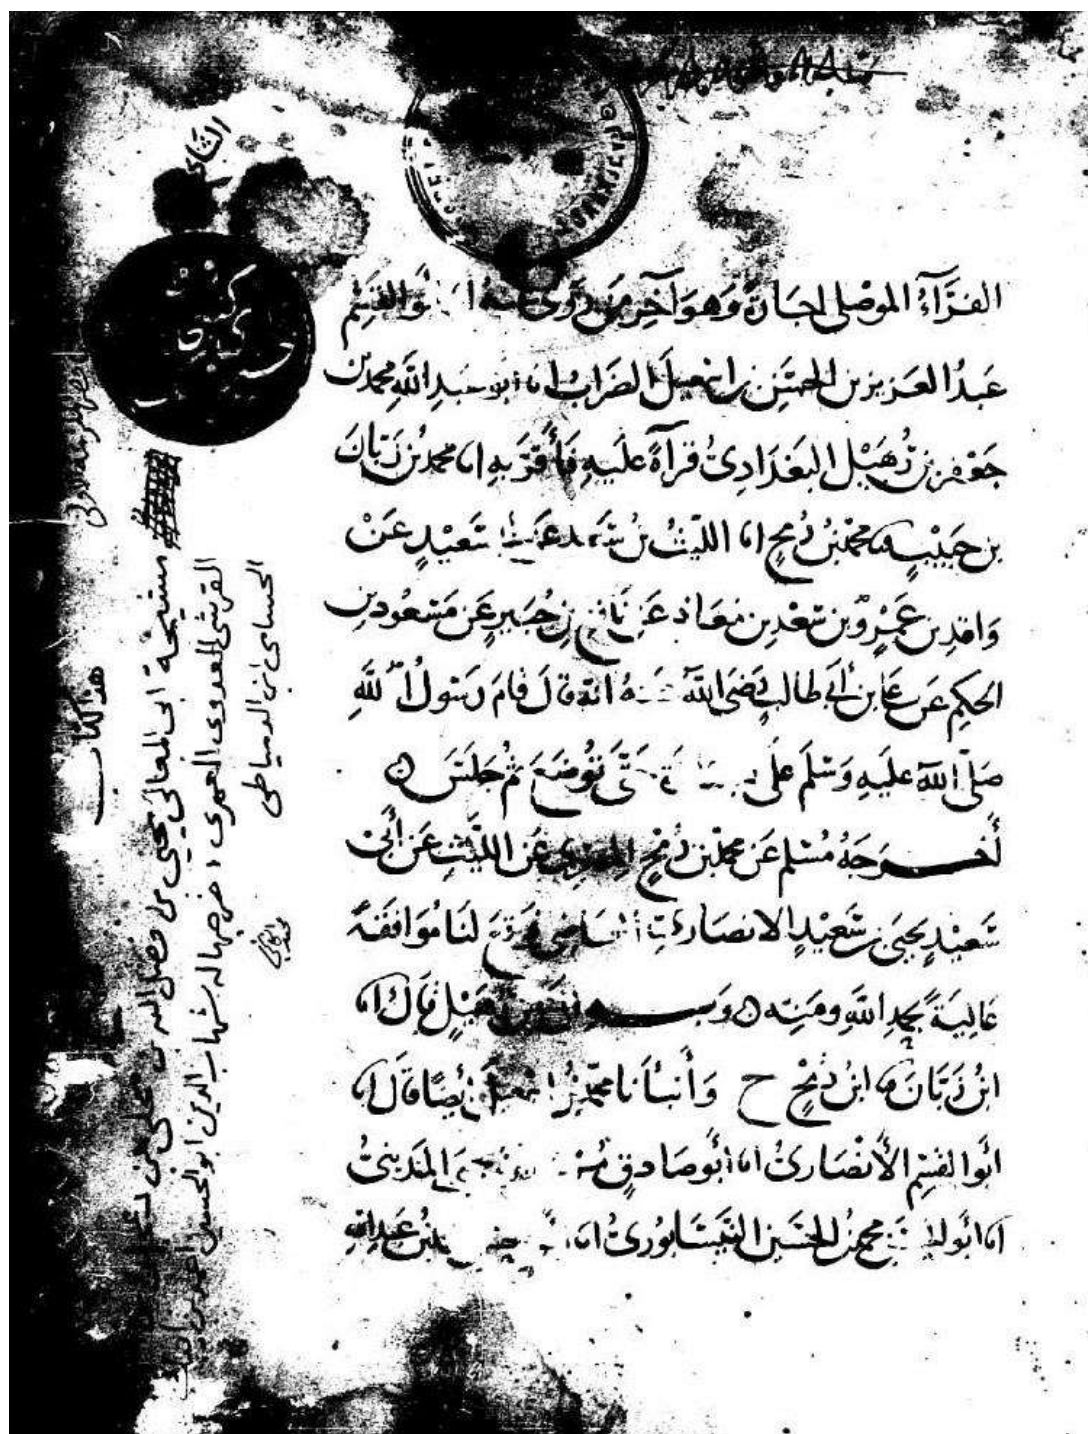 الفَرَّآءُ الموصلى اجازةً وَهوَ آخِر مَن رَوى عنه انا ابُو القسِم
عَبدُ العَزيز بن الحسَن بن اسمعيل الضَراب انا ابو عبدِ اللهِ محمد بن
جَعْفر بن دُهَيْل البَغدَادِىُّ قرآةً علَيهِ فَأقرَّ بهِ انا محمد بن زَبّان
بن حَبيْب محمد بن رُمحٍ انا الليْثُ بن سَعد عَن سَعيْدٍ عَنْ
وَاقدِ بن عَمْرو بن سَعْد بن معَاذ عَن نَافع بن جُبَيرٍ عَن مَسْعود بن
الحكم عَن على بن أبى طالب رَضىَ اللهُ عنهُ انهُ قالَ قامَ رَسُولُ اللهِ
صَلّى اللهُ علَيهِ وَسَلم عَلى حَتَّى تُوضَعَ ثم جَلسَ
أخرَجَهُ مُسْلم عَن محمد بن رُمحٍ المصرى عَن اللَّيْثِ عَن أبى
سَعيْدٍ يحيَى بن سَعيْدٍ الانصَارىّ فوَقعَ لنَا مُوَافقَةً
عَاليَةً بحمدِ اللهِ ومَنِّه وَبه دهَيْلٍ قالَ انا
ابنُ زَبّان ابنُ رُمْحٍ ح وَأنبأنا محمد بن اسمعيل أيضًا قالَ انا
ابُو القسِم الأنصَارىُّ انا أبُو صَادقٍ المَدينىُّ
انا ابُو محمد بن الحسَين النيسَابُورىُّ انا بن عَبدِ اللهِ
الثانى
هذا كتاب
مشيخة ابى المعالى يحيى بن فضل الله بن محلى بن
القرشى العدوى العمرى اخرجها له شهاب الدين ابو الحسين احمد بن ايبك
الحسامى ابن الدمياطى